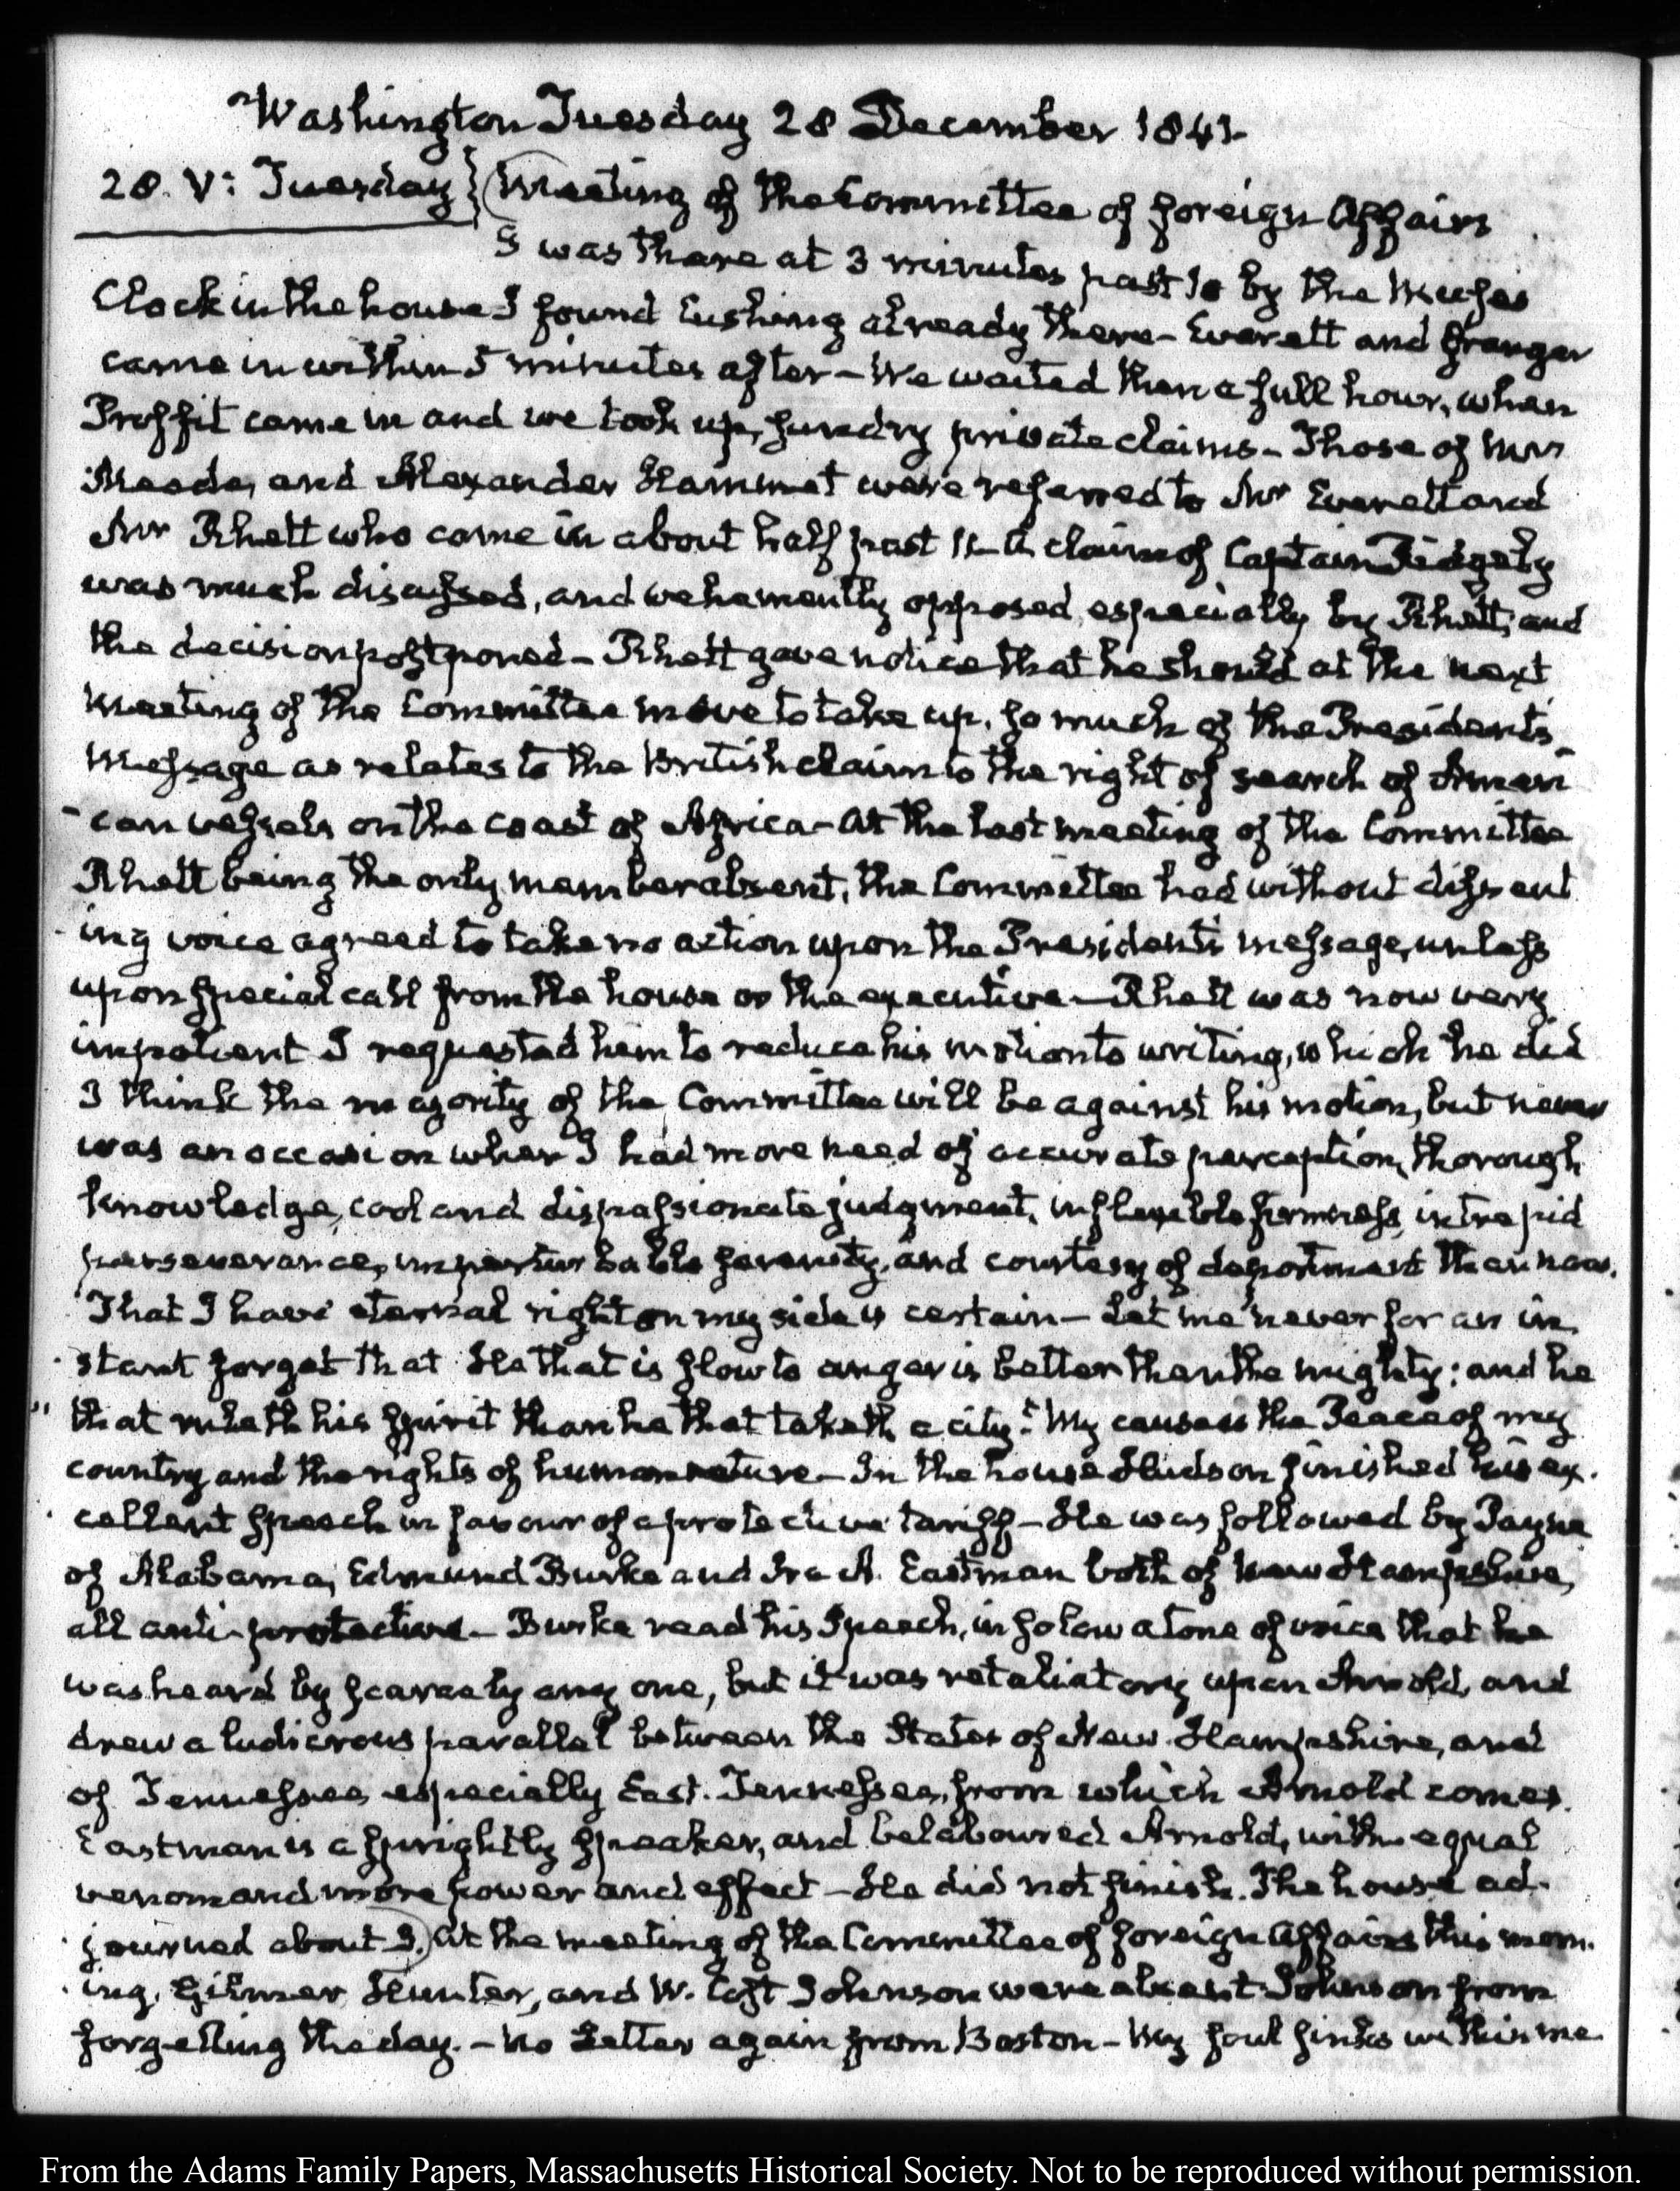 Washington Tuesday 28 December 1841.
28. V: Tuesday } (Meeting of the Committee of foreign Affairs
I was there at 3 minutes past 10 by the Muses
Clock in the house I found Cushing already there - Everett and Granger
came in within 5 minutes after - We waited then a full hour, when
Proffit came in and we took up, sundry private claims - Those of Mrs
Meade, and Alexander Hammet were referred to Mr Everett and
Mr Rhett who came in about half past 11 - A claim of Captain Ridgely
was much discussed, and vehemently opposed, especially by Rhett, and
the decision postponed - Rhett gave notice that he should at the next
meeting of the Committee move to take up, so much of the Presidents
Message as relates to the British claim to the right of search of Ameri
-can vessels on the coast of Africa - At the last meeting of the Committee
Rhett being the only member absent, the Committee had without dissent
-ing voice agreed to take no action upon the Presidents message, unless
upon special call from the house or the executive - Rhett was now very
impatient I requested him to reduce his motion to writing, which he did
I think the majority of the Committee will be against his motion, but never
was an occasion when I had more need of accurate perception, thorough
knowledge, cool and dispassionate judgment, inflexible firmness, intrepid
perseverance, imperturbable serenity, and courtesy of deportment than now.
That I have eternal right on my side is certain - Let me never for an in
-stant forget that He that is slow to anger is better than the mighty; and he
"that ruleth his spirit than he that taketh a city." My cause is the Peace of my
country and the rights of human nature - In the house Hudson finished his ex-
-cellent speech in favour of a protective tariff - He was followed by Payne
of Alabama, Edmund Burke and Ira A. Eastman both of New Hampshire,
all anti-protective - Burke read his Speech, in so low a tone of voice that he
was heard by scarcely any one, but it was retaliatory upon Arnold, and
drew a ludicrous parallel between the States of New Hampshire, and
of Tennessee, especially East. Tennessee, from which Arnold comes.
Eastman is a sprightly speaker, and belaboured Arnold, with equal
venom and more power and effect - He did not finish. The house ad-
-journed about 3.) At the meeting of the Committee of foreign Affairs this morn-
-ing, Gilmer Hunter, and W. Cost Johnson were absent Johnson from
forgetting the day. - No Letter again from Boston - My soul sinks within me
From the Adams Family Papers, Massachusetts Historical Society. Not to be reproduced without permission.